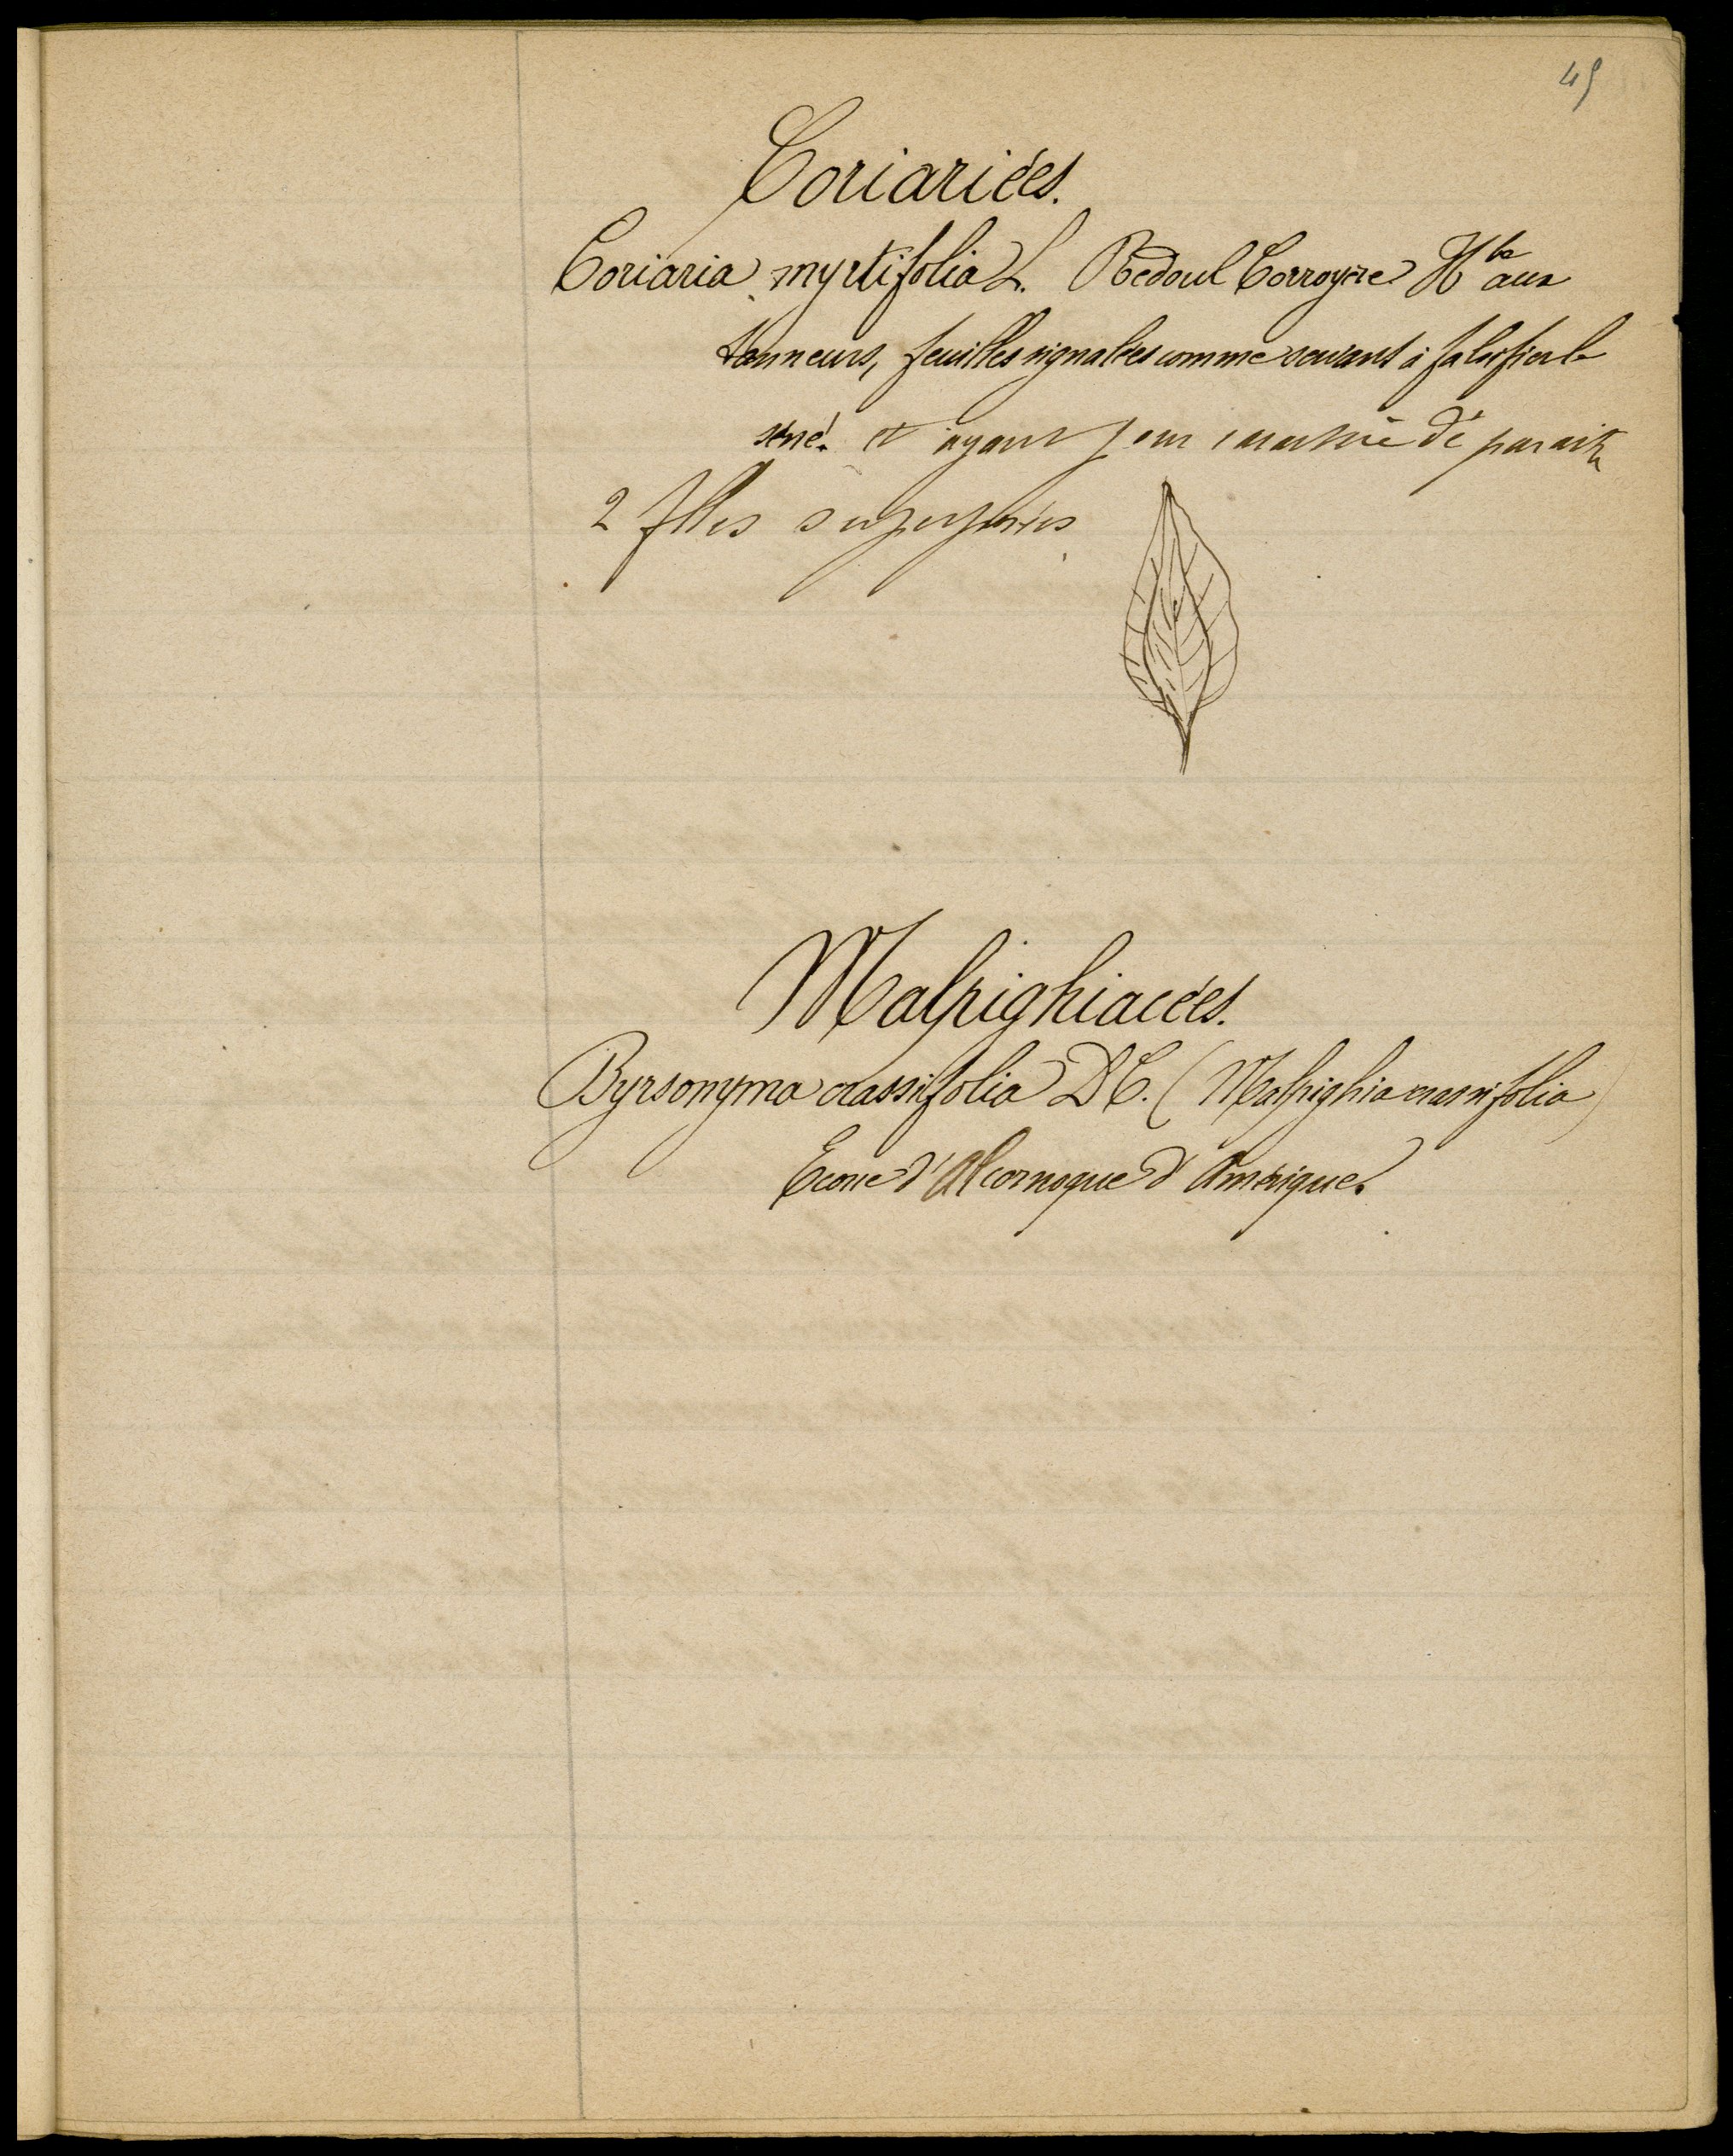 45
Coriariées.
Coriaria myrtifolia L. Redoul Corroyère Hbe aux
tanneurs, feuilles signalées comme servant à falsifier le
séné. et ayant pour caractère de paraitre
2 flles superposées
Malpighiacées.
Byrsonyma crassifolia DC. (Malpighia crassifolia)
Ecorce d'Alcornoque d'Amérique.